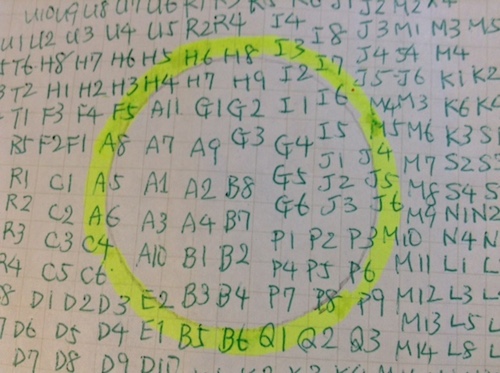 U10 U9 U8 U7 U6 I4 J2 M2
U1 U2 U3 U4 U5 R2 R4 I8 J3 M1 M3 M5
T6 H8 H7 H6 H5 H6 H8 I3 I7 J4 S4 M4
T2 H1 H2 H3 H4 H7 H9 I2 J5 J6 K1 K2
T1 F3 F4 F5 A11 G1 G2 I1 I6 M4 M3 K6
R5 F2 F1 A8 A7 A9 G3 G4 I5 M5 M6 K3
R1 C1 A5 A1 A2 B8 G5 J1 J4 M7 S2 S3
R2 C2 A6 A3 A4 B7 G6 J2 J5 M8 S4
R3 C3 C4 A10 B1 B2 P1 P2 J3 J6 M9 N1 N2
R4 C5 C6 P4 P5 P3 M10 N4
D1 D2 D3 E2 B3 B4 P7 P8 P6 M11 L1
D6 D5 D4 E1 B5 B6 Q1 Q2 P9 M12 L3
D7 D8 D9 D10 Q3 M13 L5
M14 L8